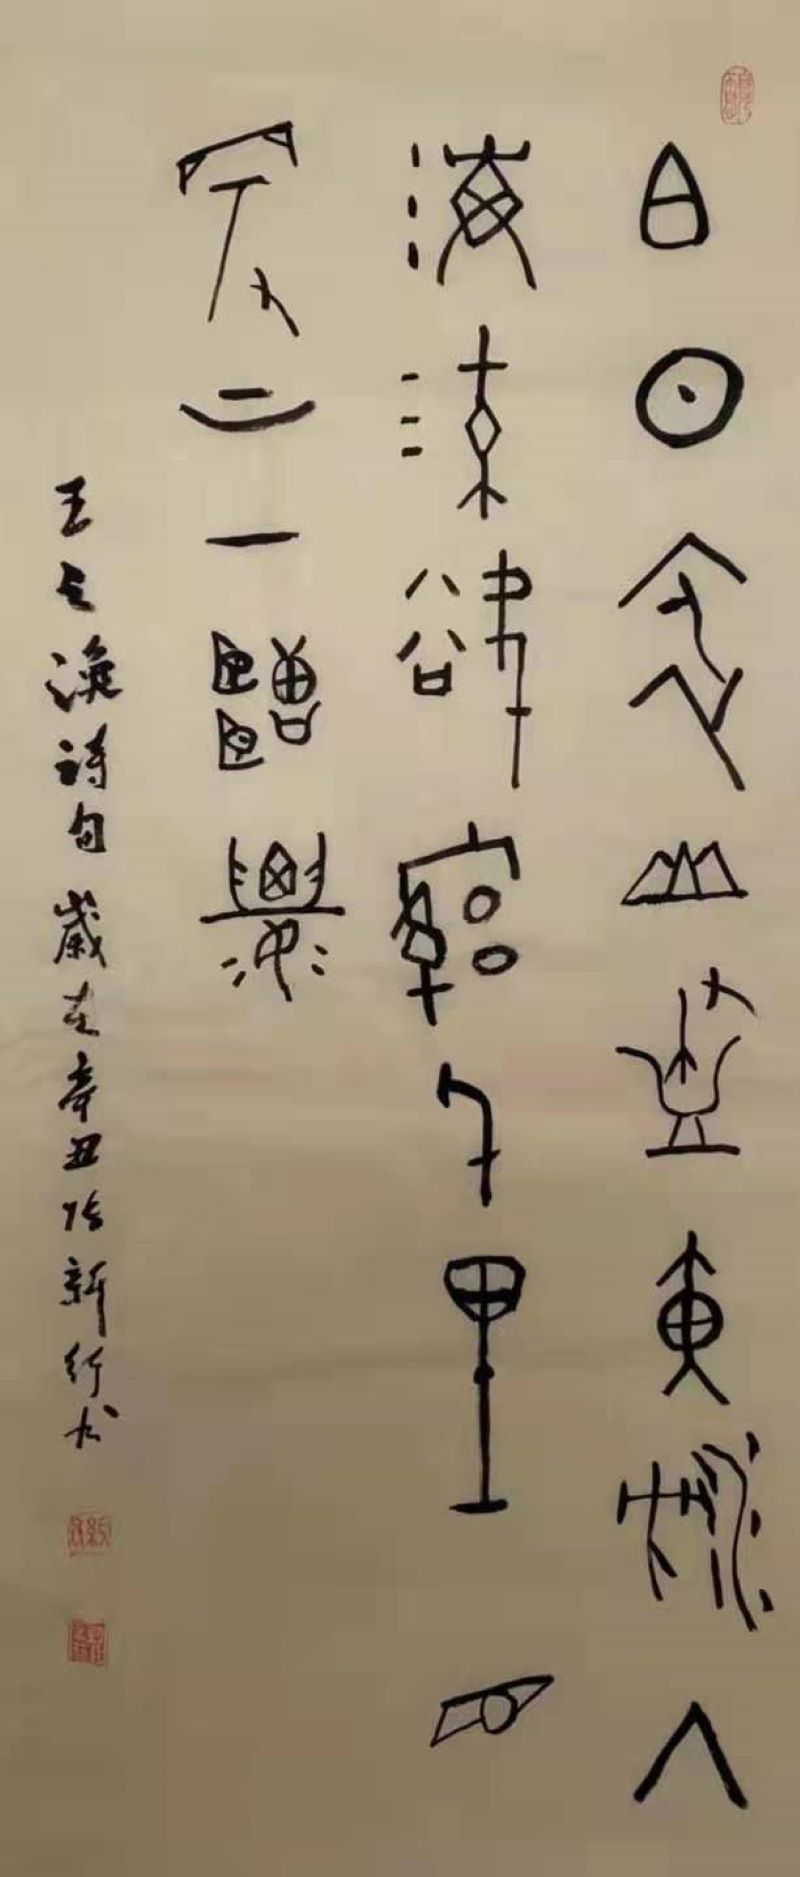 白日依山盡黃河入
海流欲窮千里目
更上一層樓
王之渙詩句歲在辛丑張新行书